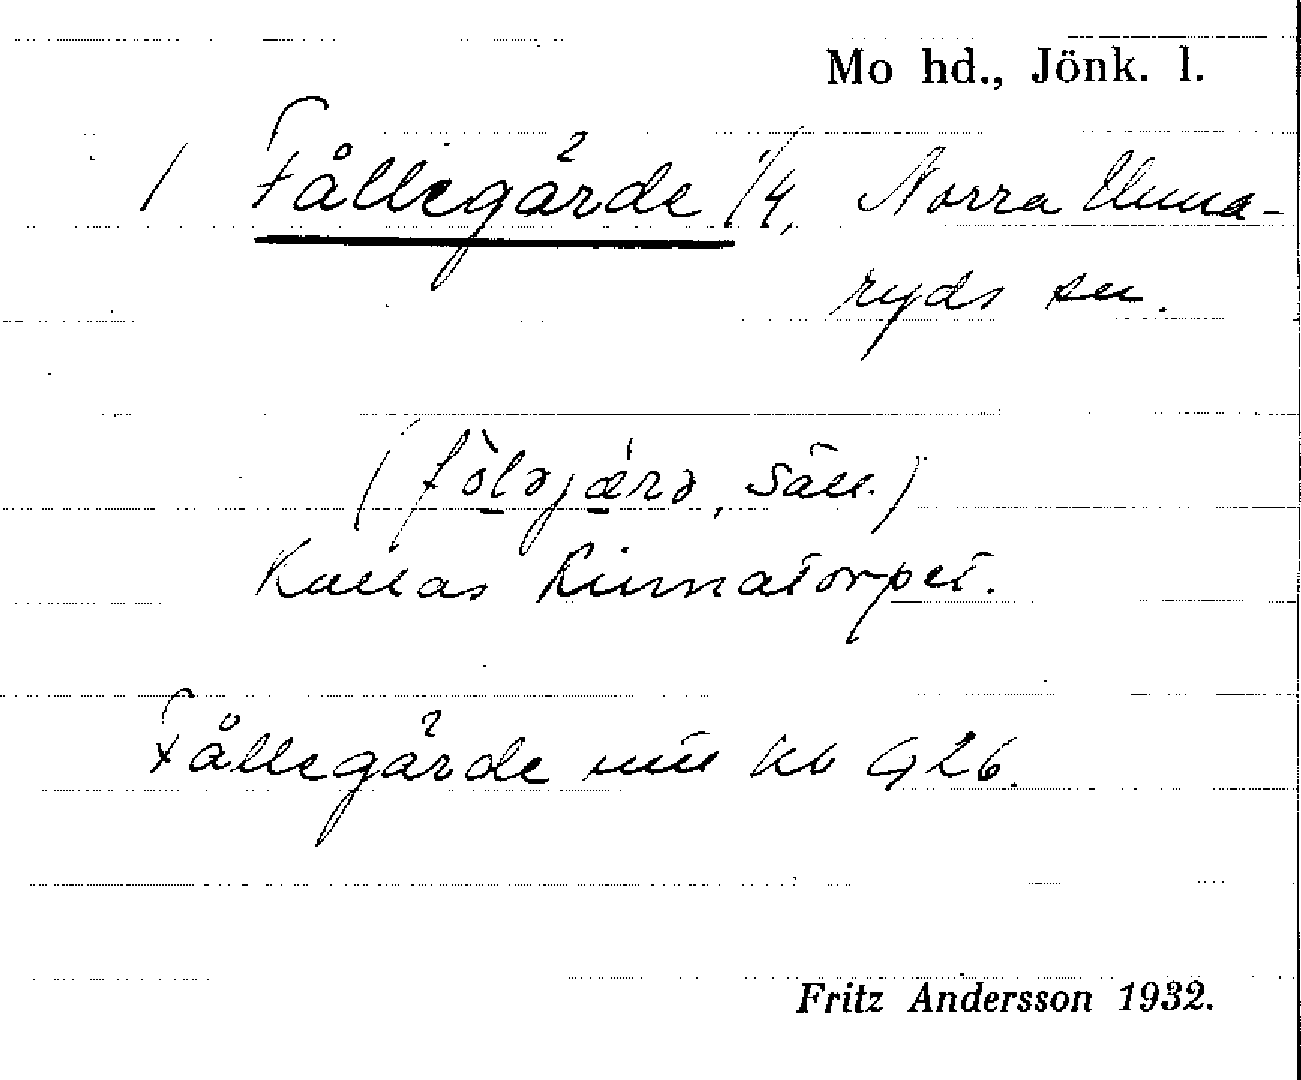 Mo hd., Jönk. l.
1 Fållegärde 1/4, Norra Unna-
ryds sn.
(fòləjǽrə, sän.)
Kallas Linnatorpet.
Fållegärde mtl Kb G 26.
Fritz Andersson 1932.